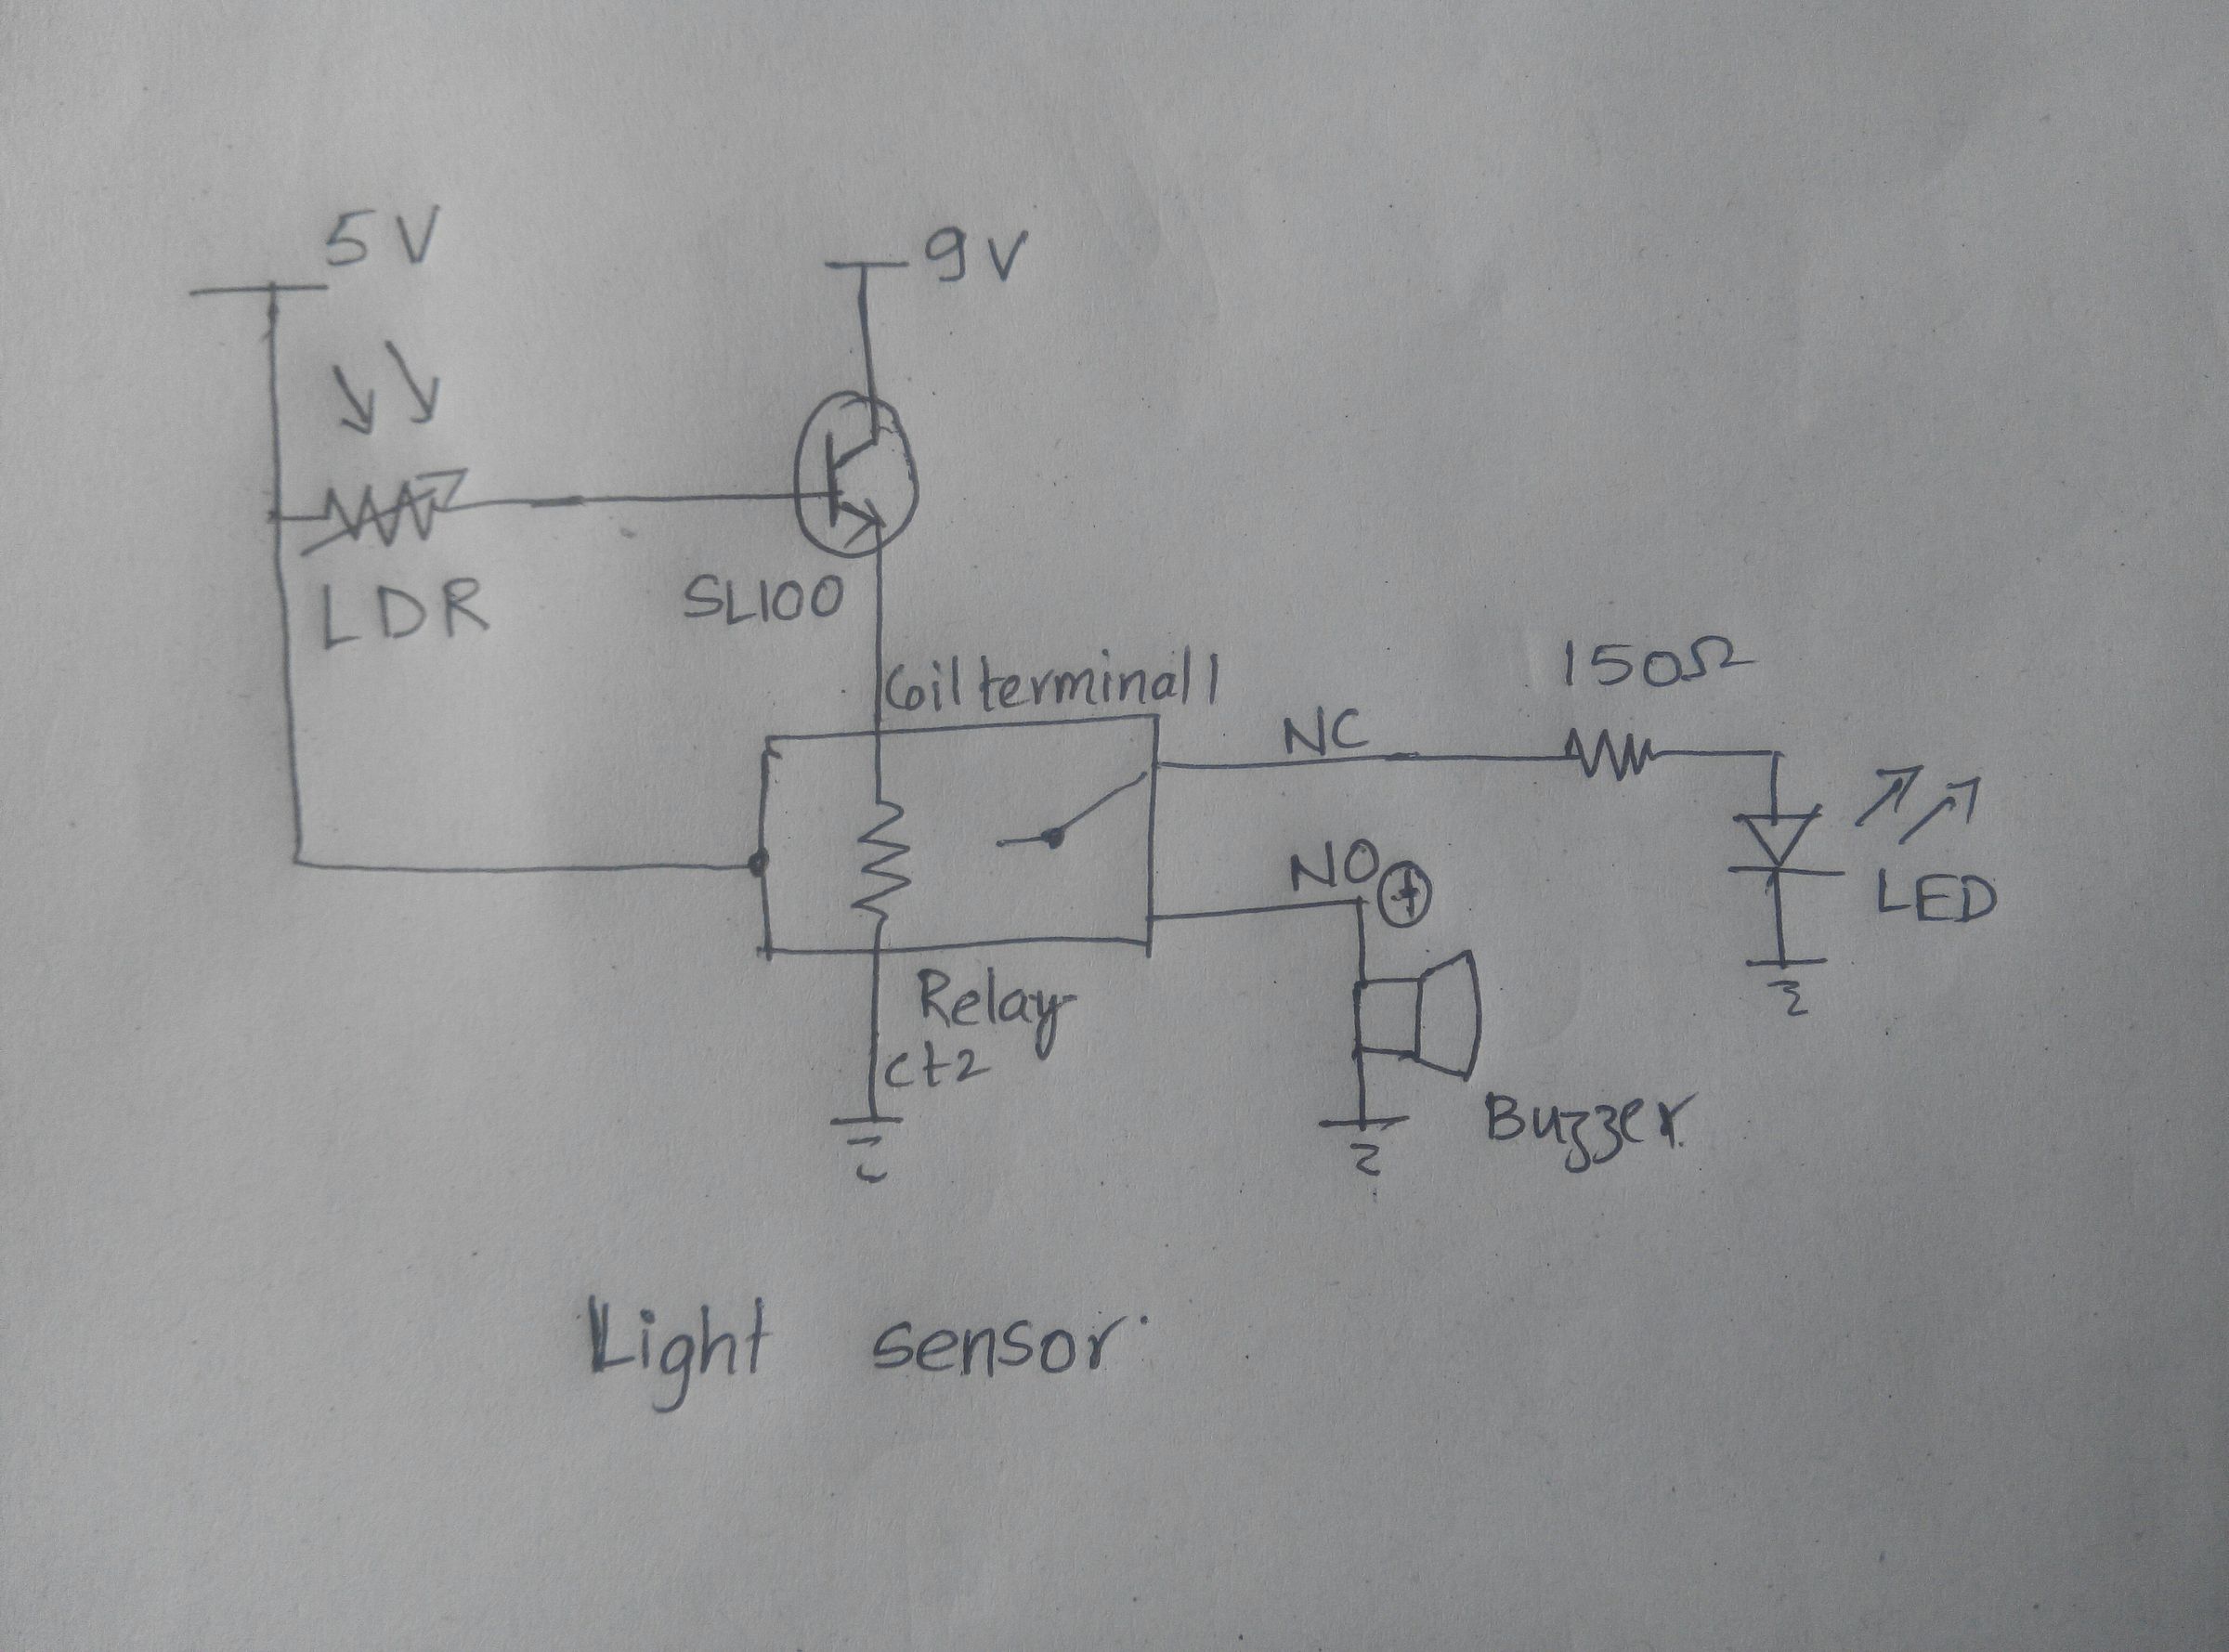 5V
9V
LDR
SL100
Coil terminal 1
150Ω
NC
NO
+
LED
Relay
Ct2
Buzzer
Light sensor